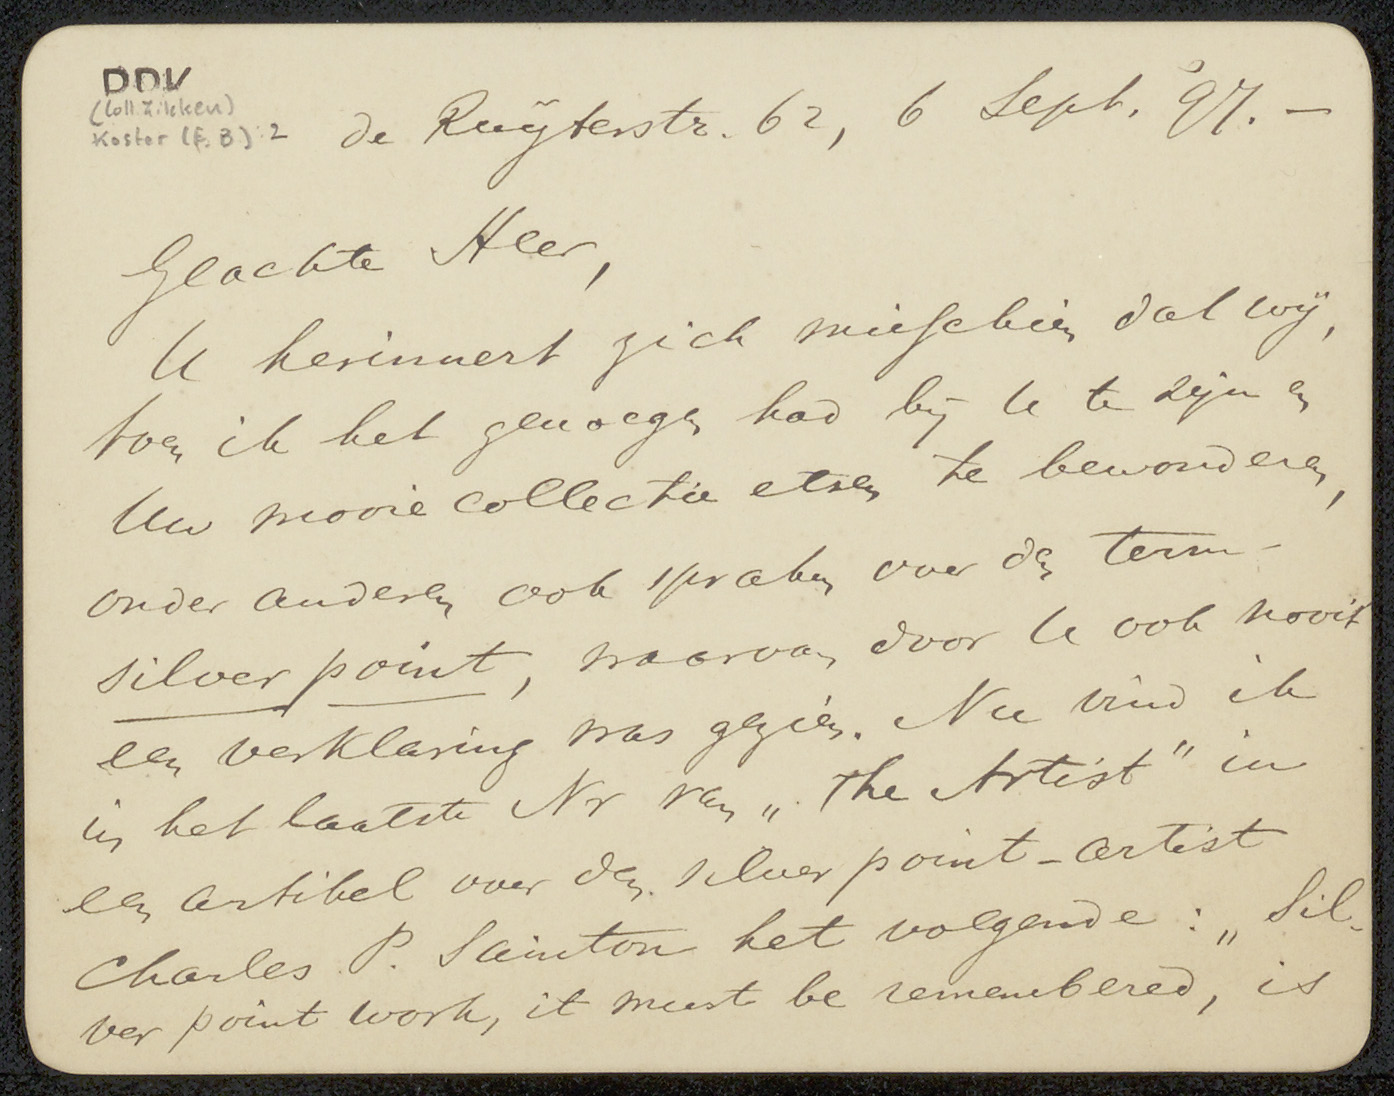 DDV
(Coll Zilcken)
Koster (E. B.) 2
de Ruÿterstr. 62, 6 Sept. '97. —
Geachte Heer,
U herinnert zich misschien dat wÿ,
toen ik het genoegen had bij U te zijn en
Uw mooie collectie etsen te bewonderen,
onder anderen ook spraken over den term -
silver point, waarvan door U ook nooit
een verklaring was gezien. Nu vind ik
in het laatste Nr van „The Artist” in
een artikel over den silver point-artist
Charles P. Sainton het volgende : „Sil-
ver point work, it must be remembered, is